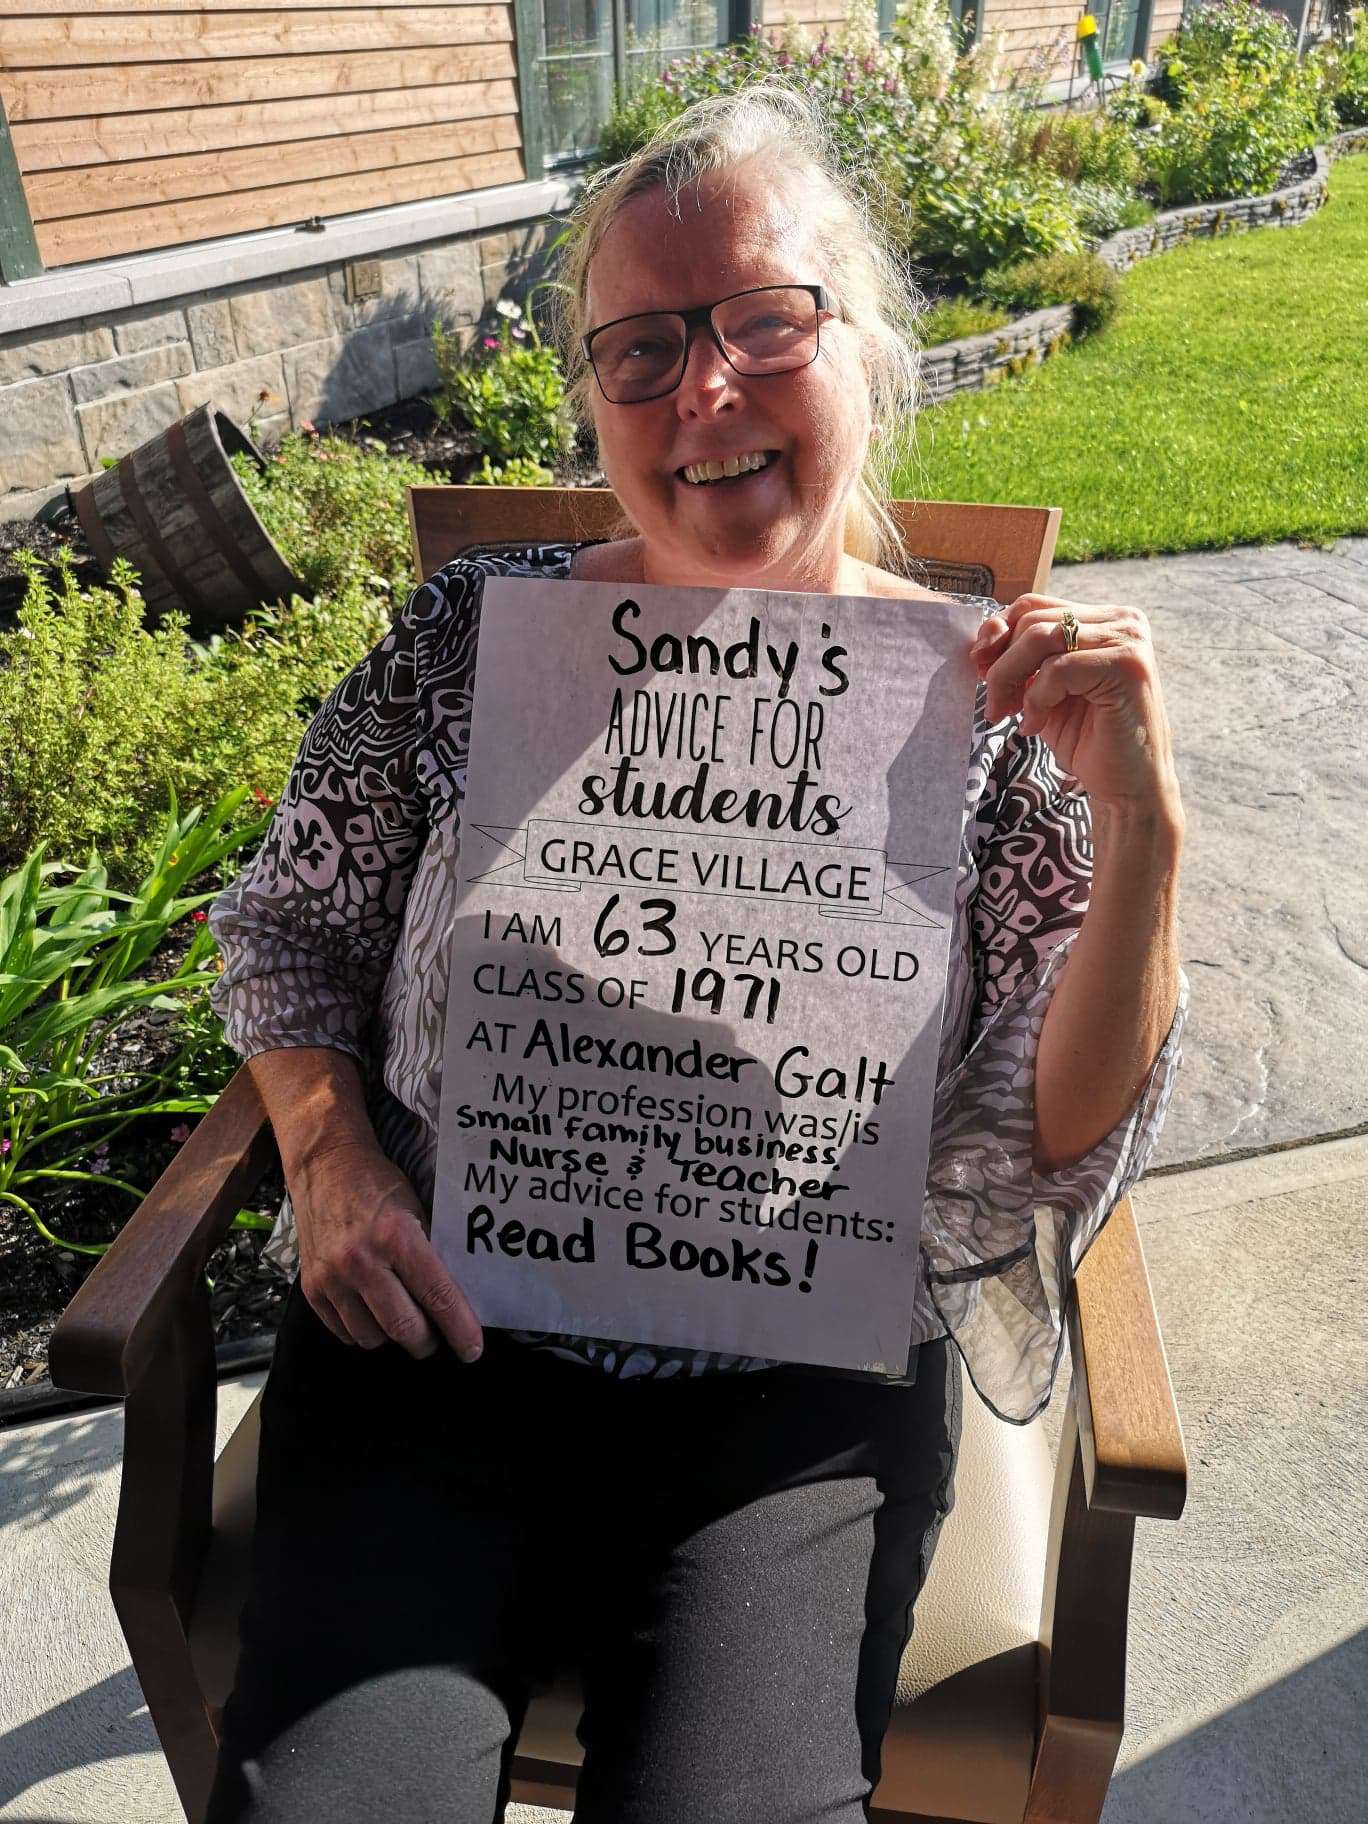 Sandy's
ADVICE FOR
students
GRACE VILLAGE
I AM 63 YEARS OLD
CLASS OF 1971
AT Alexander Galt
My profession was/is
Small family business.
Nurse & Teacher
My advice for students:
Read Books!